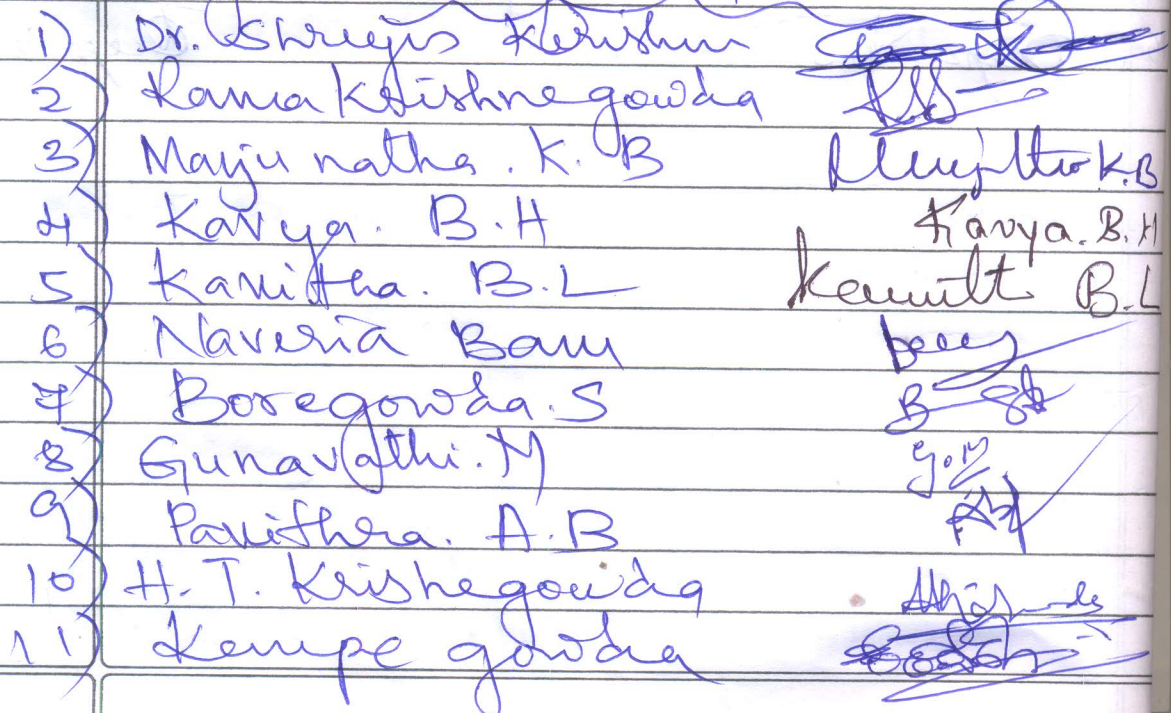 1) Dr. Shreejis Krishna
2) Rama Krishne gowda
3) Manju natha. K. B Manjuntha K.B
4) Kavya. B.H Kavya. B.H
5) Kavitha. B.L Kavitt B.L
6) Banu
7) Boregowda. S
8) Gunavathi. M G.M
9) Pavithra. A.B
10) H. T. Krishegowda
11) Kempe gowda